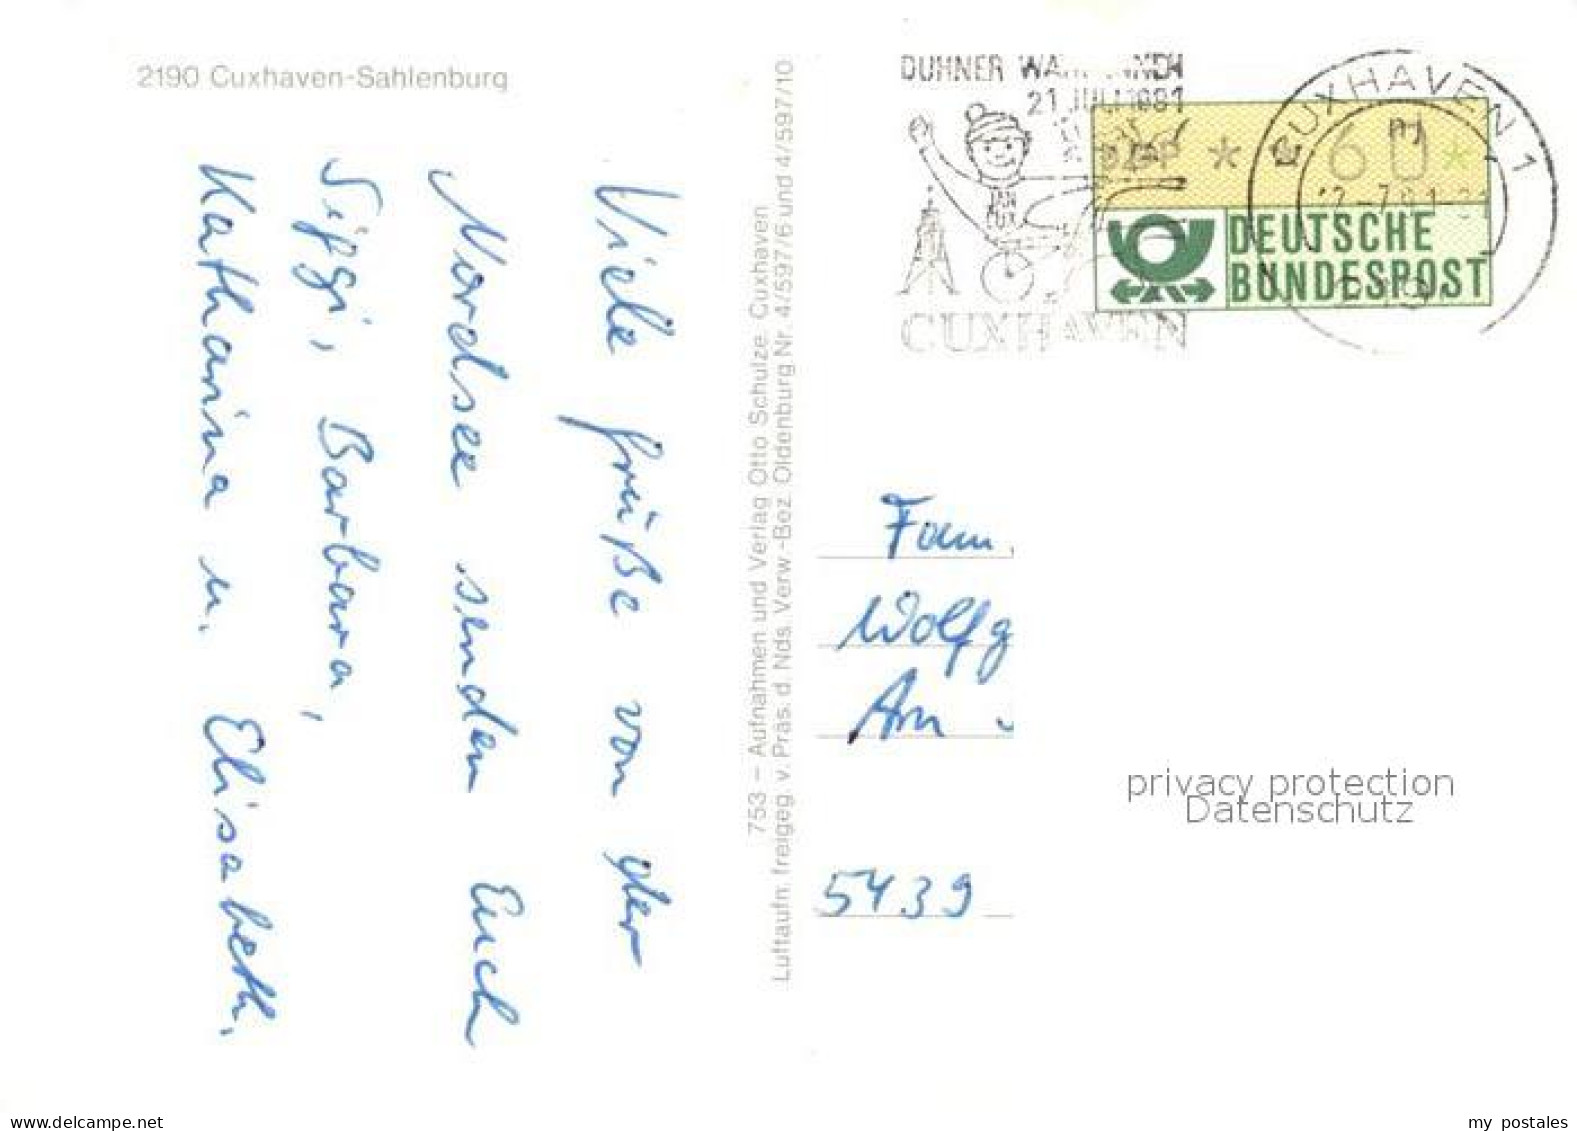 2190 Cuxhaven-Sahlenburg
Viele Grüße von der
Nordsee senden Euch
Siggi, Barbara,
Katharina u. Elisabeth.
753 – Aufnahmen und Verlag Otto Schulze, Cuxhaven
Luftaufn. freigeg. v. Präs. d. Nds. Verw.-Bez. Oldenburg Nr. 4/597/6 und 4/597/10
DUHNER
21. JULI 1981
JAN
CUX
CUXHAVEN
CUXHAVEN 1
DBP * 60 *
DEUTSCHE
BUNDESPOST
Fam.
Wolfg
Am
5439
privacy protection
Datenschutz
www.delcampe.net
my postales